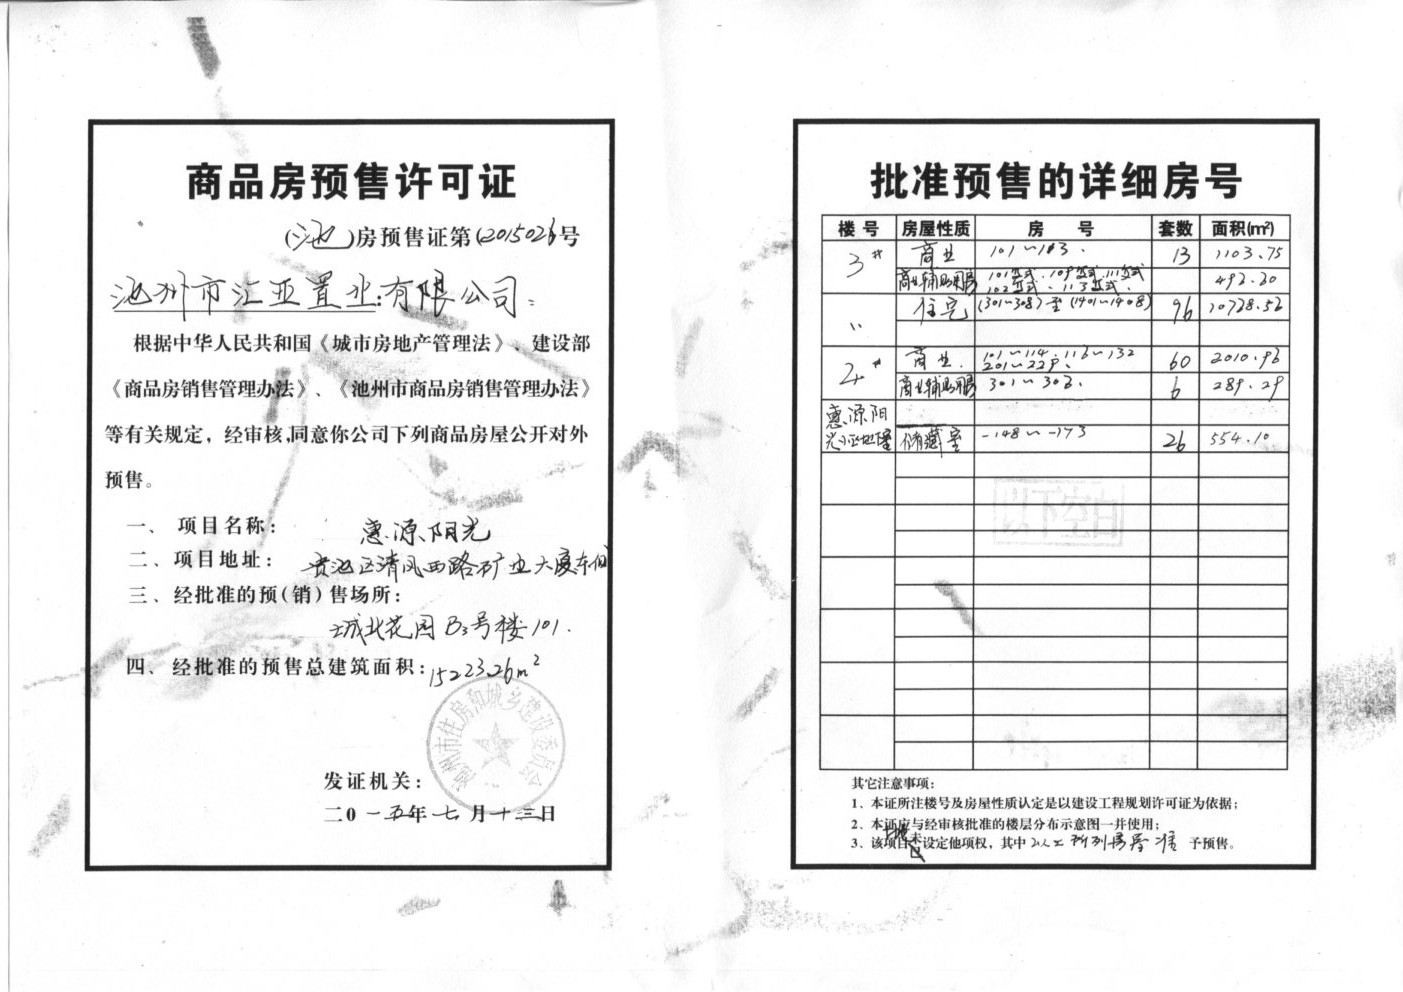 商品房预售许可证
(池)房预售证第(2015026号
池州市汇亚置业有限公司：
根据中华人民共和国《城市房地产管理法》、建设部
《商品房销售管理办法》、《池州市商品房销售管理办法》
等有关规定，经审核,同意你公司下列商品房屋公开对外
预售。
一、项目名称： 惠源阳光
二、项目地址： 贵池区清风西路矿业大厦东侧
三、经批准的预(销)售场所：
城北花园B3号楼101.
四、经批准的预售总建筑面积：15223.26m²
池州市住房和城乡建设委员会
发证机关：
二0一五年七月十三日
批准预售的详细房号
楼号 房屋性质 房号 套数 面积(m²)
3# 商业 101~113. 13 1103.75
商业辅助用房 492.20
〃 住宅 (301~308)至(1401~1408) 96 10728.52
2# 商业. 101~114.116~132 201~229. 60 2010.96
商业辅助用房 301~306. 6 289.29
惠源阳
光 储藏室 -148~-173 26 554.10
以下空白
其它注意事项：
1、本证所注楼号及房屋性质认定是以建设工程规划许可证为依据；
2、本证应与经审核批准的楼层分布示意图一并使用；
3、该项目未设定他项权，其中以上所列房屋准予预售。